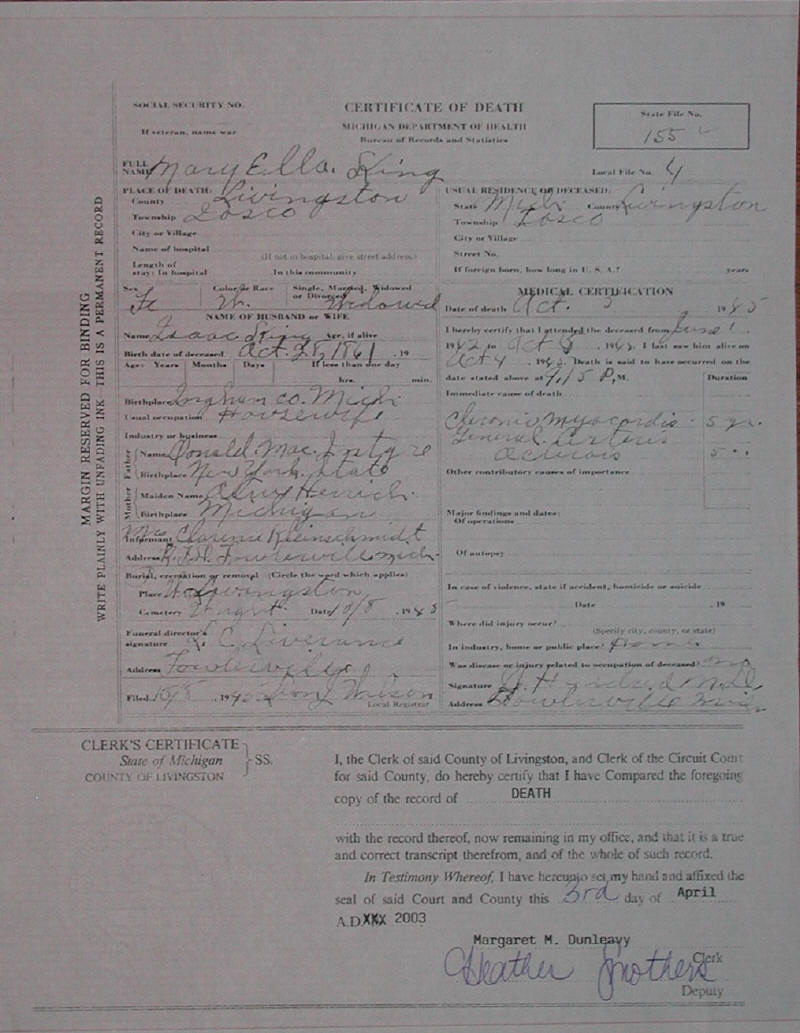 SOCIAL SECURITY NO.
CERTIFICATE OF DEATH
State File No.
155
If veteran, name war
MICHIGAN DEPARTMENT OF HEALTH
Bureau of Records and Statistics
FULL NAME Mary Ella King
Local File No. 4
PLACE OF DEATH:
County Livingston
Township Iosco
City or Village
Name of hospital
(If not in hospital, give street address)
Length of stay: In hospital In this community
USUAL RESIDENCE OF DECEASED:
State Mich County Livingston
Township Iosco
City or Village
Street No.
If foreign born, how long in U. S. A.? years
Sex Fe
Color or Race W.
Single, Married, Widowed or Divorced Widowed
NAME OF HUSBAND or WIFE
Name Isaac King Age, if alive
Birth date of deceased Oct. 28, 1861 , 19
Age: Years Months Days If less than one day
hrs. min.
Birthplace Ingham Co. Mich
Usual occupation Housewife
Industry or business
Father Name Donald Mac
Birthplace New York State
Mother Maiden Name
Birthplace Michigan
Informant Mrs Clarence Kleinschmidt
Address Fowlerville Mich.
Burial, cremation or removal (Circle the word which applies)
Place Livingston
Cemetery Wright Date 10/8 , 19
Funeral director's signature C. Liverance
Address Fowlerville
Filed , 19 Wilson
Local Registrar
MEDICAL CERTIFICATION
Date of death Oct. 5 19
I hereby certify that I attended the deceased from June 1
19 to Oct , 19 . I last saw him alive on
Oct 4 , 19 . Death is said to have occurred on the
date stated above at 9:15 P.M.
Duration
Immediate cause of death
Chronic Myocardis 5 yr.
General Arterio 5 "
Other contributory causes of importance
Major findings and dates:
Of operations
Of autopsy
In case of violence, state if accident, homicide or suicide
Date , 19
Where did injury occur?
(Specify city, county, or state)
In industry, home or public place? Home
Was disease or injury related to occupation of deceased? no
Signature M.D.
Address Fowlerville Mich.
MARGIN RESERVED FOR BINDING
WRITE PLAINLY WITH UNFADING INK THIS IS A PERMANENT RECORD
CLERK'S CERTIFICATE
State of Michigan
COUNTY OF LIVINGSTON
SS.
I, the Clerk of said County of Livingston, and Clerk of the Circuit Court
for said County, do hereby certify that I have Compared the foregoing
copy of the record of DEATH
with the record thereof, now remaining in my office, and that it is a true
and correct transcript therefrom, and of the whole of such record.
In Testimony Whereof, I have hereunto set my hand and affixed the
seal of said Court and County this 3rd day of April
A.D. XXX 2003
Margaret M. Dunleavy
Clerk
Heather Smothers
Deputy